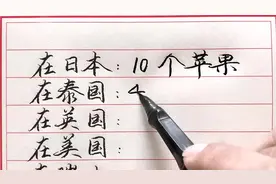 在日本：10个苹果
在泰国：4
在英国：
在美国：
在瑞士